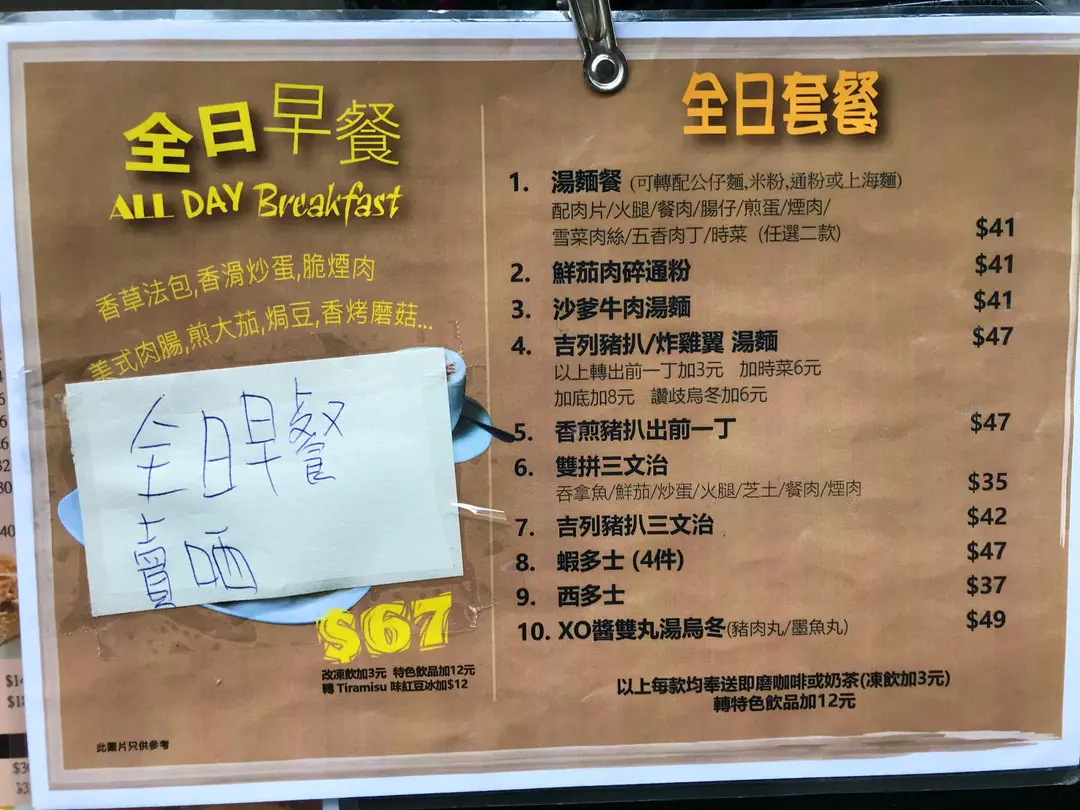 全日早餐
ALL DAY Breakfast
香草法包,香滑炒蛋,脆煙肉
美式肉腸,煎大茄,焗豆,香烤磨菇...
全日早餐
賣哂
$67
改凍飲加3元 特色飲品加12元
轉 Tiramisu 味紅豆冰加$12
此圖片只供參考
全日套餐
1. 湯麵餐 (可轉配公仔麵,米粉,通粉或上海麵)
配肉片/火腿/餐肉/腸仔/煎蛋/煙肉/
雪菜肉絲/五香肉丁/時菜 (任選二款) $41
2. 鮮茄肉碎通粉 $41
3. 沙爹牛肉湯麵 $41
4. 吉列豬扒/炸雞翼 湯麵 $47
以上轉出前一丁加3元 加時菜6元
加底加8元 讚歧烏冬加6元
5. 香煎豬扒出前一丁 $47
6. 雙拼三文治
吞拿魚/鮮茄/炒蛋/火腿/芝士/餐肉/煙肉 $35
7. 吉列豬扒三文治 $42
8. 蝦多士 (4件) $47
9. 西多士 $37
10. XO醬雙丸湯烏冬(豬肉丸/墨魚丸) $49
以上每款均奉送即磨咖啡或奶茶(凍飲加3元)
轉特色飲品加12元